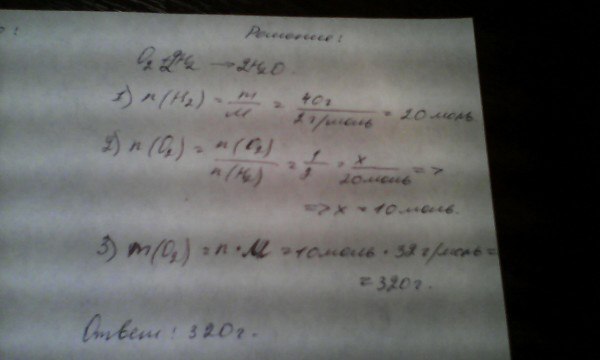 Решение:
O₂ + 2H₂ → 2H₂O.
1) n(H₂) = m/M = 40г/2г/моль = 20 моль
2) n(O₂) = n(O₂)/n(H₂) = 1/2 = x/20моль =>
=> x = 10 моль.
3) m(O₂) = n · M = 10моль · 32г/моль =
= 320г.
Ответ: 320г.